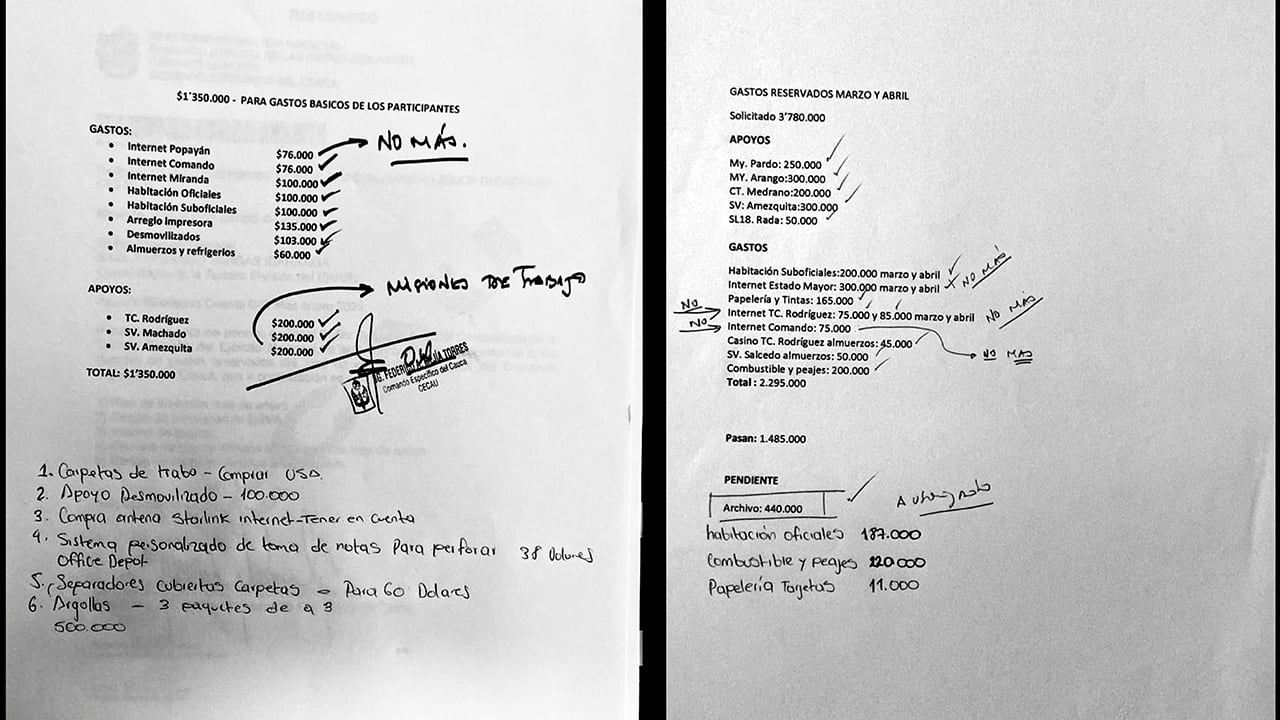 $1'350.000 - PARA GASTOS BASICOS DE LOS PARTICIPANTES
GASTOS:
• Internet Popayán $76.000 NO MÁS.
• Internet Comando $76.000
• Internet Miranda $100.000
• Habitación Oficiales $100.000
• Habitación Suboficiales $100.000
• Arreglo Impresora $135.000
• Desmovilizados $103.000
• Almuerzos y refrigerios $60.000
MISIONES DE TRABAJO
APOYOS:
• TC. Rodríguez $200.000
• SV. Machado $200.000
• SV. Amezquita $200.000
TOTAL: $1'350.000
TORRES
Comando Específico del Cauca
CECAU
1. Carpetas de trabo - Comprar USA.
2. Apoyo Desmovilizado - 100.000
3. Compra antena Starlink internet-Tener en cuenta
4. Sistema personalizado de toma de notas Para perforar 38 Dolores
Office Depot
5. Separadores cubiertas carpetas - Para 60 Dolares
6. Argollas - 3 paquetes de a 3
500.000
GASTOS RESERVADOS MARZO Y ABRIL
Solicitado 3'780.000
APOYOS
My. Pardo: 250.000
MY. Arango:300.000
CT. Medrano:200.000
SV: Amezquita:300.000
SL18. Rada: 50.000
GASTOS
Habitación Suboficiales:200.000 marzo y abril
Internet Estado Mayor: 300.000 marzo y abril NO MÁS
Papelería y Tintas: 165.000
NO Internet TC. Rodríguez: 75.000 y 85.000 marzo y abril NO MÁS
NO Internet Comando: 75.000 NO MAS
Casino TC. Rodríguez almuerzos: 45.000
SV. Salcedo almuerzos: 50.000
Combustible y peajes: 200.000
Total : 2.295.000
Pasan: 1.485.000
PENDIENTE
Archivo: 440.000
habitación oficiales 187.000
Combustible y peajes 120.000
Papelería Tarjetas 11.000